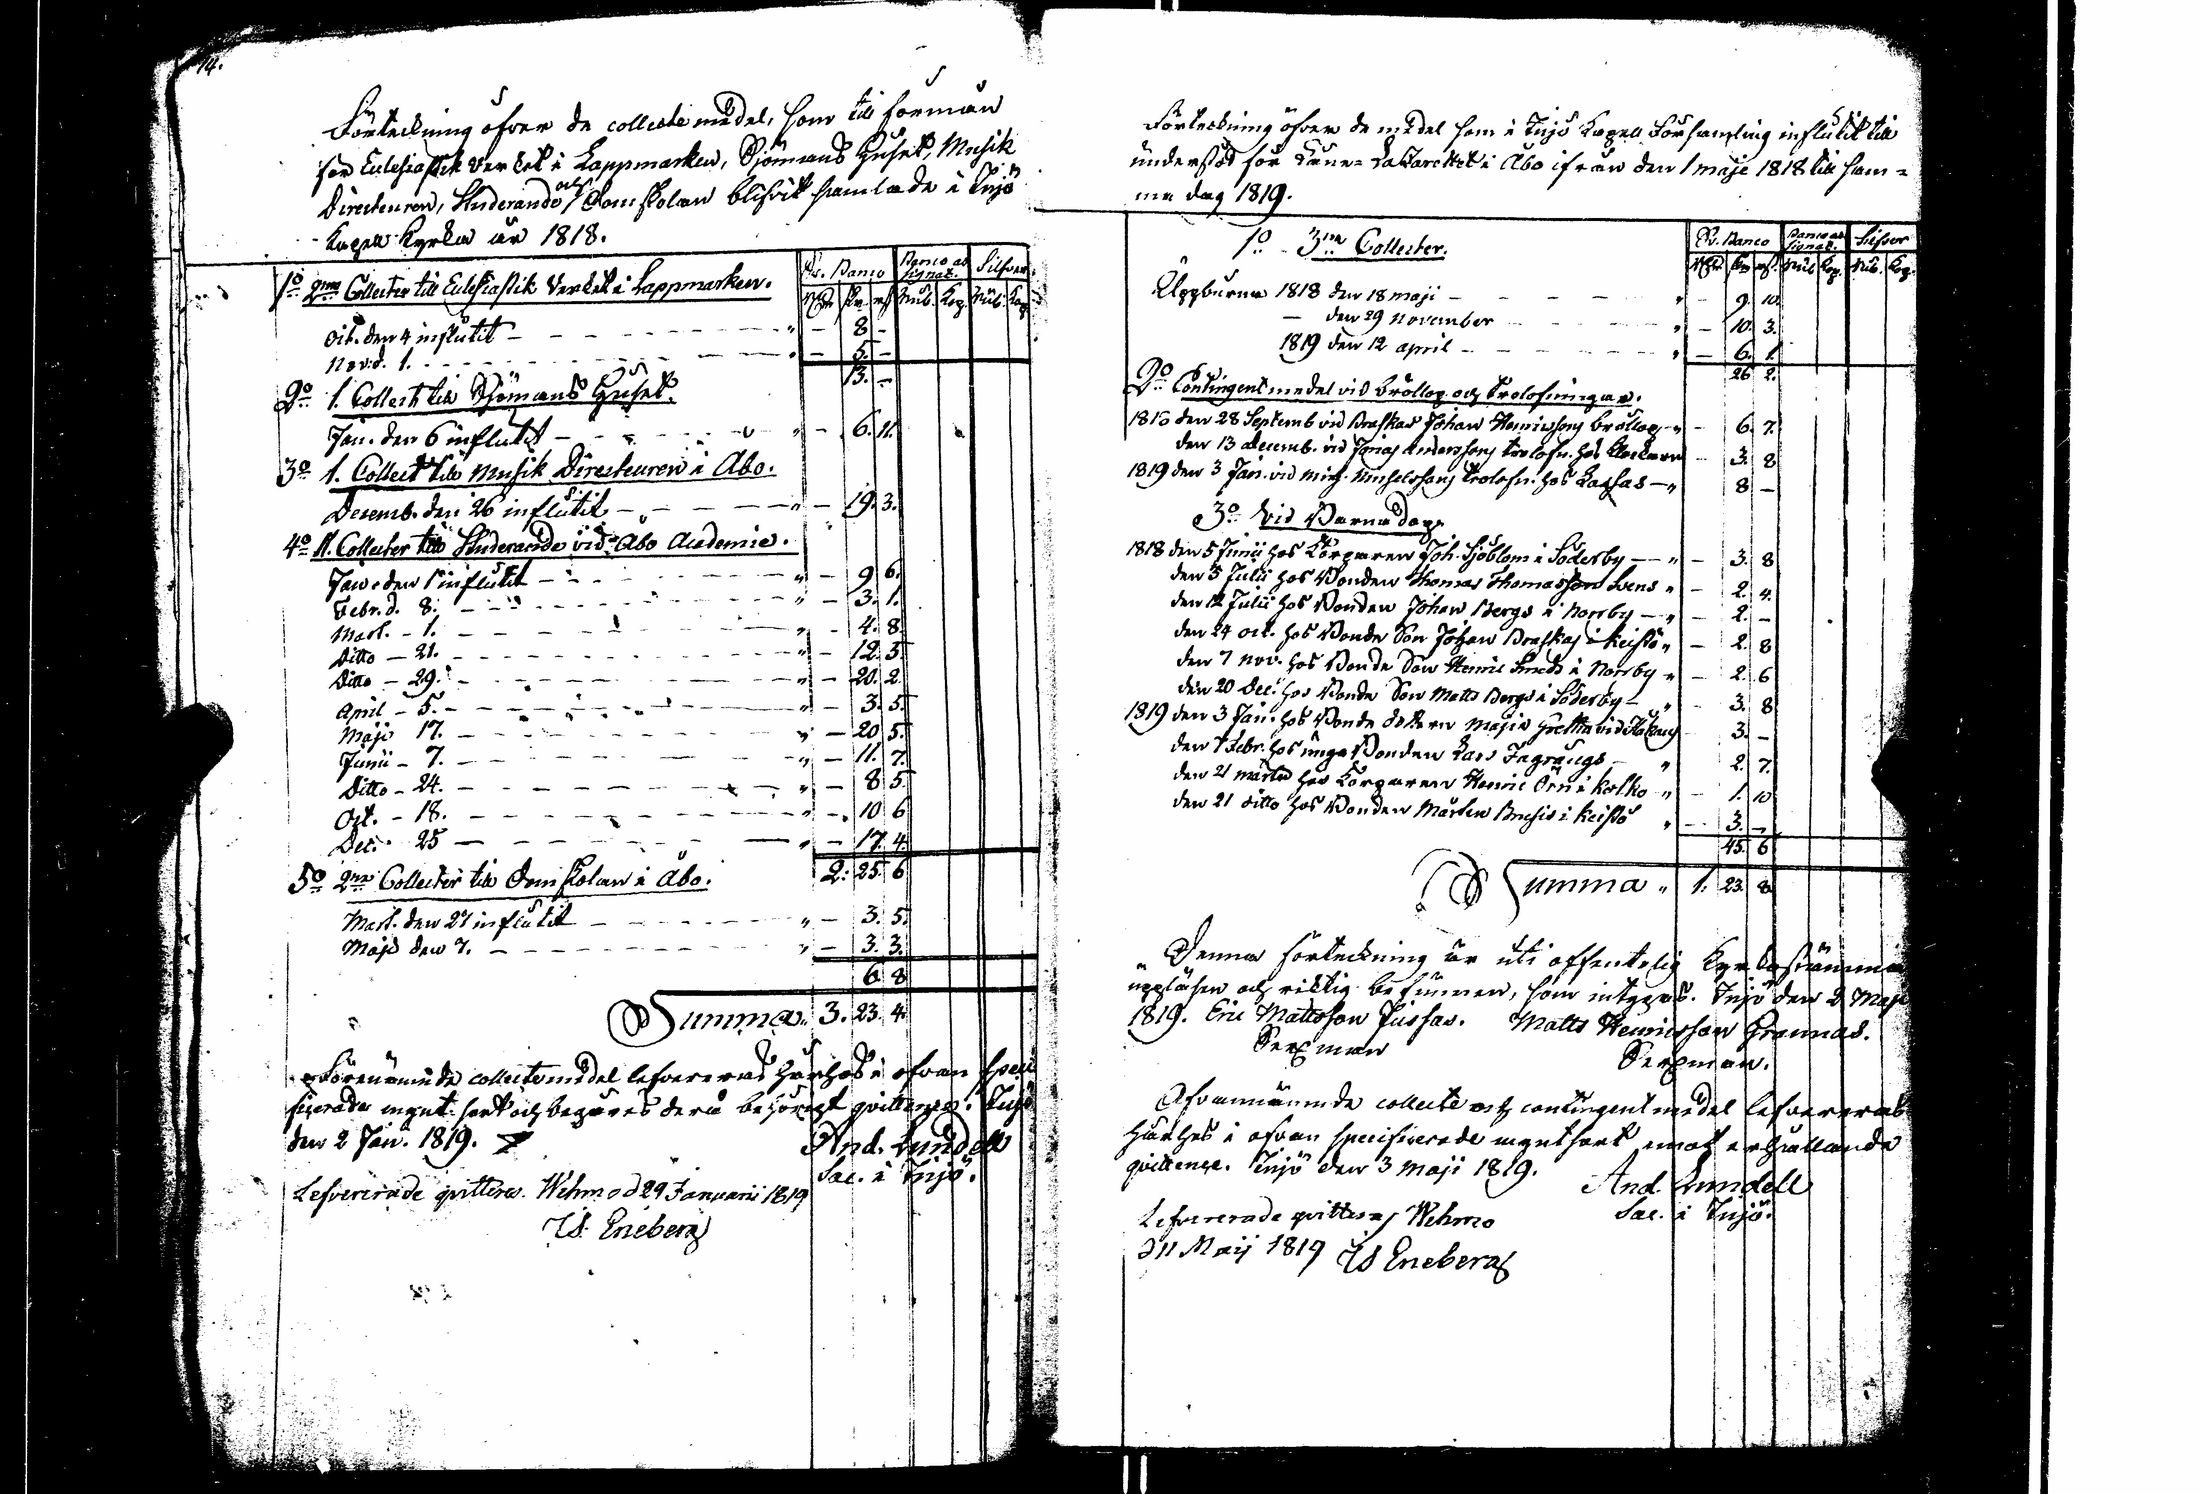 14.
Förteckning öfver de collecte medel, som till förmån
för Eclesiastik Verket i Lappmarken, Sjömans Huset, Musik
Directeuren, Studerande och Domskolan blifvit samlade i Iniö
Kapell Kyrka år 1818.
Sv. Banco Banco assignat. Silfver
1o 2ne Collecter till Eclesiastik Verket i Lappmarken.
Rdr sk. rst. Rub. Kop. Rub. Kop.
Oct. den 4 influtit — " — 8 —
Nov. d. 1. — " — 5. —
13. —
2o 1. Collect till Sjömans Huset.
Jan. den 6 influtit — " — 6. 11.
3o 1. Collect till Musik Directeuren i Åbo.
Decemb. den 26 influtit — " — 19. 3.
4o 11. Collecter till Studerande vid Åbo Academie.
Jan. den 1 influtit — " — 9 6.
Febr. d. 8. — " — 3. 1.
Mart. — 1. — " — 4. 8
Ditto — 21. — " — 12. 3
Ditto — 29. — " — 20. 2.
April — 5. — " — 3. 5.
Maji 17. — " — 20 5.
Junii — 7. — " — 11. 7.
Ditto — 24. — " — 8 5
Oct. — 18. — " — 10 6
Dec. 25 — " — 17. 4.
2. 25. 6
5o 2ne Collecter till Domskolan i Åbo.
Mart. den 27 influtit — " — 3. 5.
Maji den 7. — " — 3. 3.
6. 8
Summa " 3. 23. 4.
Förenämnde collectemedel lefvereras härhos i ofvan speci
ficerade mynt sort och begäres derå behörigt qvittence. Iniö
den 2 Jan. 1819. And. Lundell
Sac. i Iniö.
Lefvererade qvitteras. Wehmo d 29 Januarii 1819
Is. Eneberg
Förteckning öfver de medel som i Iniö Kapell Församling influtit till
understöd för Läns-Lazarettet i Åbo ifrån den 1 maji 1818 till sam=
ma dag 1819.
1o 3ne Collecter.
Sv. Banco Banco assignat. Silfver
Rdr sk. rst. Rub. Kop. Rub. Kop.
Uppburne 1818 den 18 maji — " — 9. 10.
— den 29 november — " — 10. 3.
1819 den 12 april — " — 6. 1.
26 2.
2o Contingent medel vid bröllop och trolofningar.
1818 den 28 Septemb vid Braskas Johan Henricssons bröllop " — 6. 7.
den 13 decemb. vid Jonas Anderssons trolofn. hos Klockaren — 3. 8
1819 den 3 Jan. vid Mich. Michelssons trolofn. hos — " 8 —
3o Vid Barnadop
1818 den 5 Junii hos Torparen Joh. Sjöblom i Söderby — " — 3. 8
den 5 Julii hos Bonden Thomas Thomasson Svens " — 2. 4.
den 12 Julii hos Bonden Johan Bergs i Norrby — " — 2. —
den 24 oct. hos Bonde Son Johan Braskas i Keistö " — 2. 8
den 7 nov. hos Bonde Son Henric Smeds i Norrby " — 2. 6
den 20 Dec. hos Bonde Son Matts Bergs i Söderby — " — 3. 8
1819 den 3 Jan. hos Bonde dottern Maja Gretha vid 3. —
den 7 Febr. hos unga Bonden Lars — " 2. 7.
den 21 martii hos Torparen Henric Örn i Kolko " — 1. 10
den 21 ditto hos Bonden Mårten i Keistö " — 3. —
45. 6
Summa " 1. 23. 8
Denna förteckning är uti offentelig Kyrkostämma
uppläsen och riktig befunnen, som intygas. Iniö den 2 Maji
1819. Eric Mattsson Jussas. Matts Henricsson Grannas.
Sexman Sexman.
Ofvannämnde collecte och contingent medel lefvereras
härhos i ofvan specificerade myntsort emot erhållande
qvittence. Iniö den 3 Maji 1819. And. Lundell
Sac. i Iniö.
Lefvererade qvitteras Wehmo
d 11 Maij 1819 Is Eneberg